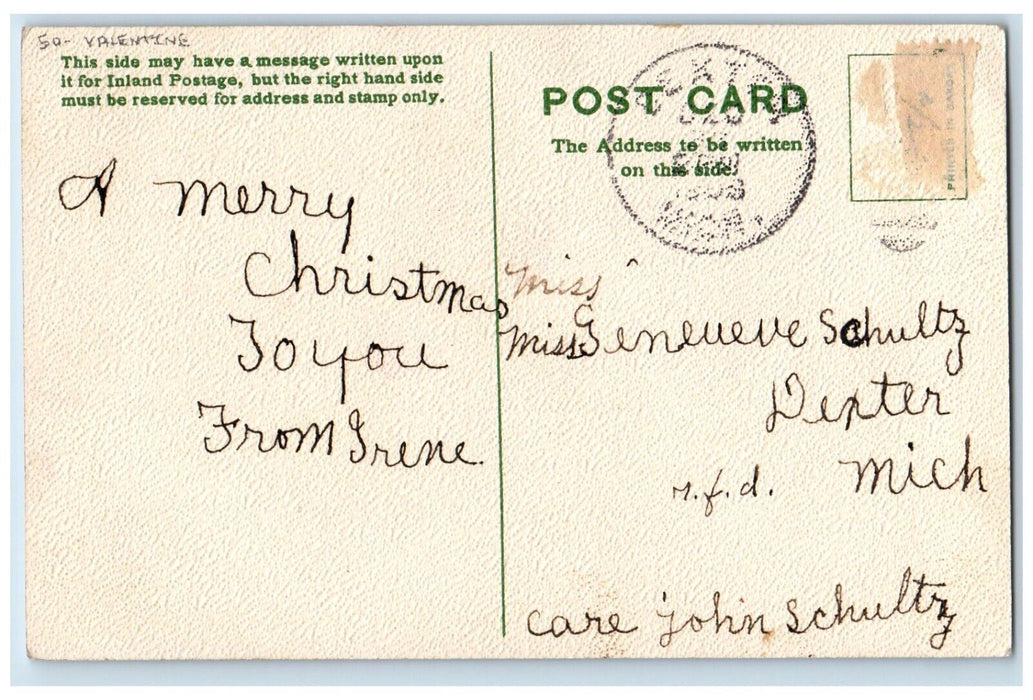 50- VALENTINE
This side may have a message written upon
it for Inland Postage, but the right hand side
must be reserved for address and stamp only.
A merry
Christmas
To you
From Irene.
POST CARD
The Address to be written
on this side.
DEXTER
MICH.
PRINTED IN
Miss
Miss Genevieve Schultz
Dexter
r.f.d. Mich
care john Schultz